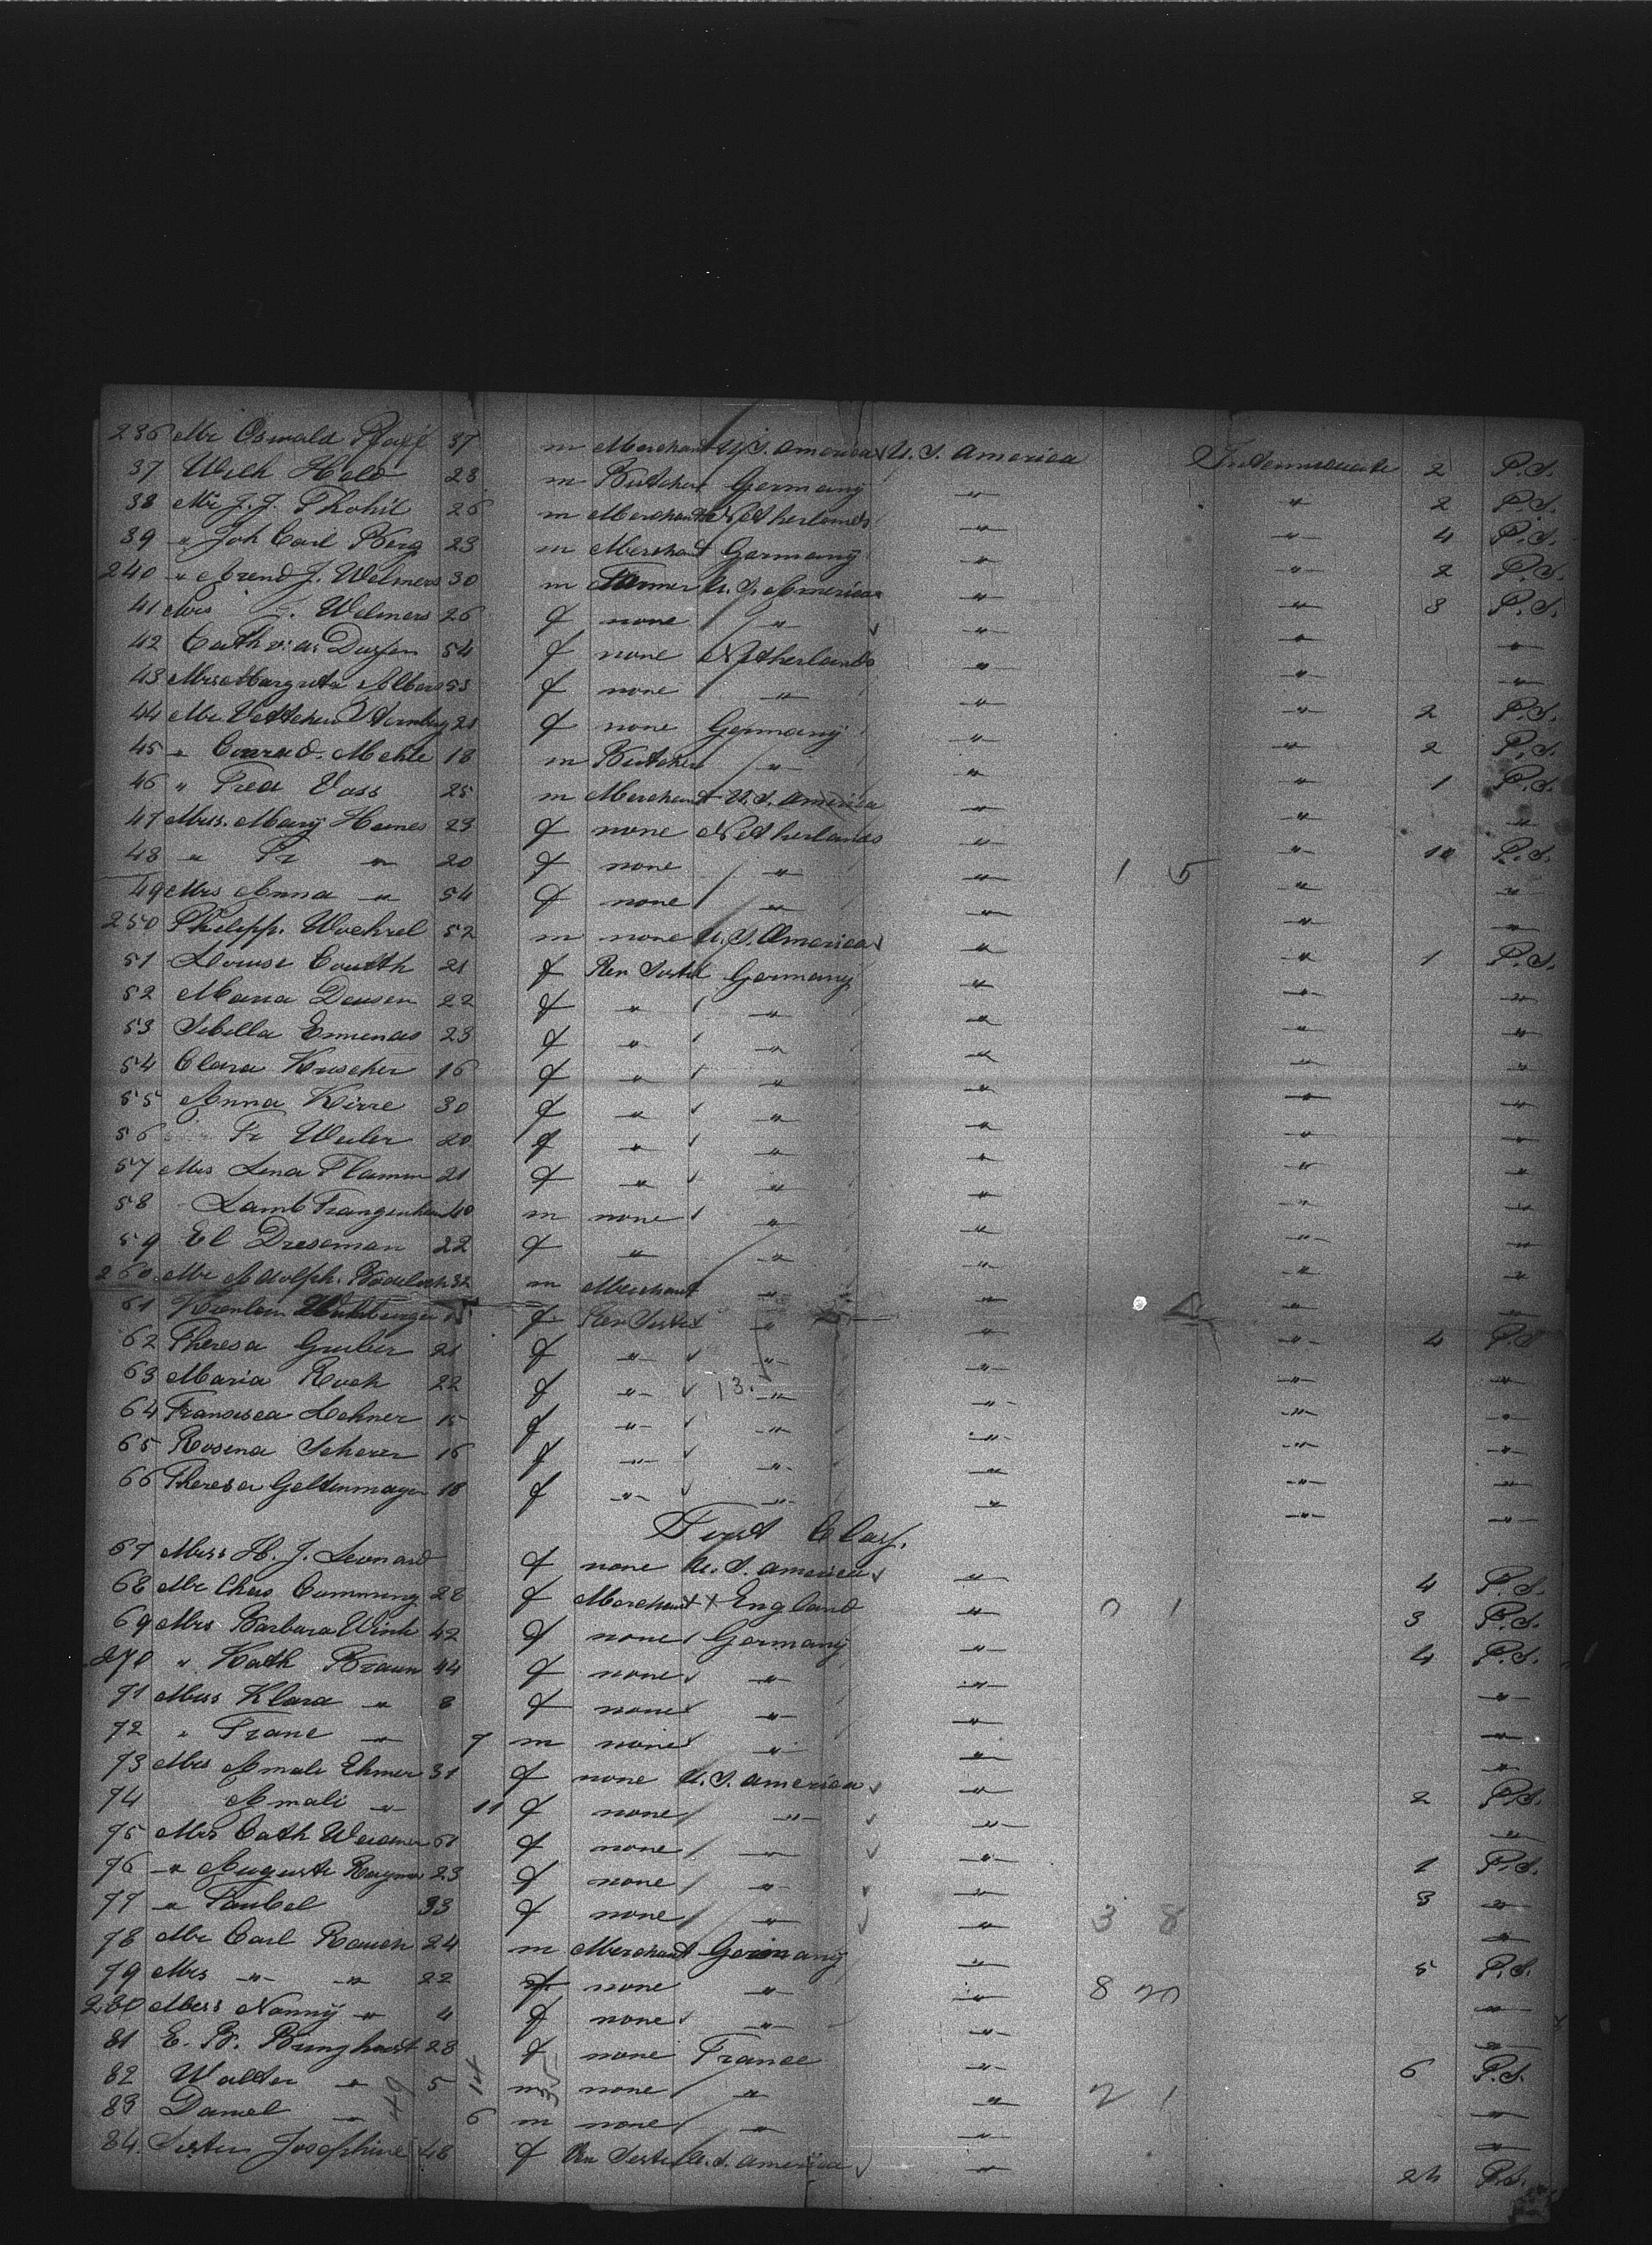 236 Mr Oswald Pfaff 37 m Merchant U.S. America U.S. America Intermediate 2 P.S.
37 Wilh Held 23 m Butcher Germany " " 2 P.S.
38 Mr J.J. 26 m Merchant Netherlands " " 4 P.S.
39 " Joh Carl Berg 23 m Merchant Germany " " 2 P.S.
240 " Arend J. Welmers 30 m Farmer U.S. America " " 3 P.S.
41 Mrs Welmers 26 f none " " " "
42 Cath 54 f none Netherlands " " "
43 Mrs Margreta Albers 53 f none " " " 2 P.S.
44 Mr Sternberg 21 f none Germany " " 2 P.S.
45 " Conrad Mehle 18 m Butcher " " " 1 P.S.
46 " Fred Voss 25 m Merchant U.S. America " " "
47 Miss Mary Hames 23 f none Netherlands " " 10 P.S.
48 " Fr " 20 f none " " 1 5 " "
49 Mrs Anna " 54 f none " " " "
250 Philipp Woehrel 52 m none U.S. America " " 1 P.S.
51 Louise Couth 21 f Rev Sister Germany " " "
52 Maria Deusen 22 f " " " " "
53 Sibella Emmenas 23 f " " " " "
54 Clara Kuscher 16 f " " " " "
55 Anna Kirre 30 f " " " " "
56 Fr Weiler 20 f " " " " "
57 Mrs Lena Flamm 21 f " " " " "
58 Lamb 40 m none " " " "
59 El Dreseman 22 f " " " " "
260 Mr Adolph 32 m Merchant " " " "
61 f Rev Sister " " " 4 P.S.
62 Theresa Gruber 21 f " " " " "
63 Maria Ruch 22 f " 13. " " " "
64 Francisca Lehner 15 f " " " " "
65 Rosina Scherer 16 f " " " " "
66 Theresa Geltenmayer 18 f " " " " "
First Class.
67 Miss H.J. Leonard f none U.S. America " 4 P.S.
68 Mr Chas Cumming 28 f Merchant x England " 0 1 3 P.S.
69 Mrs Barbara Wink 42 f none Germany " 4 P.S.
270 " Kath Braun 44 f none " " "
71 Miss Klara " 8 f none " " "
72 " Franc " 7 m none " " "
73 Mrs Amali Ehmer 31 f none U.S. America " 2 P.S.
74 Amali " 11 f none " " "
75 Mrs Cath 51 f none " " 1 P.S.
76 " Auguste 23 f none " " 3 "
77 " Paubel 33 f none " " 3 8 "
78 Mr Carl Rauch 24 m Merchant Germany " 5 P.S.
79 Mrs " " 22 f none " " 8 20 "
280 Miss Nanny " 4 f none " " "
81 E. B. Bringhurst 28 f none France " 6 P.S.
82 Walter " 5 m none " " 2 1 "
83 Daniel " 6 m none " " "
84 Sister Josephine 46 f Rev Sister U.S. America " 24 P.S.
49 14 35